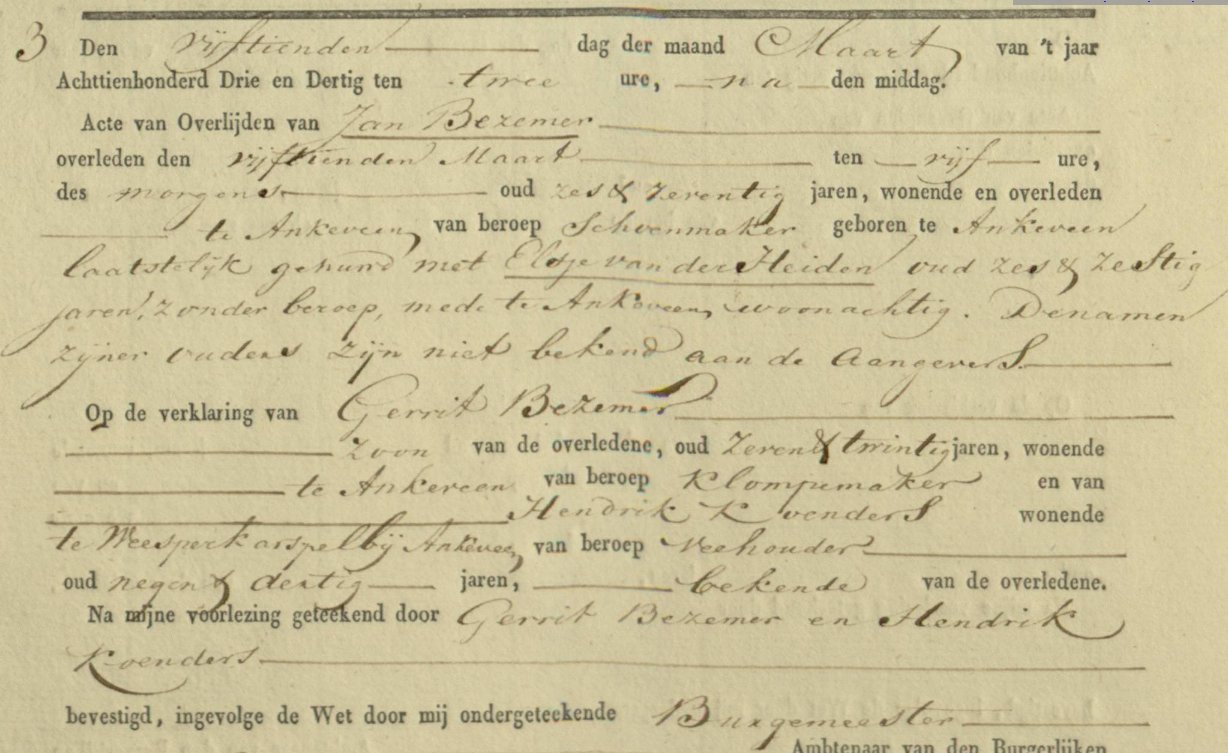 3 Den vijftienden dag der maand Maart van 't jaar
Achttienhonderd Drie en Dertig ten twee ure, na den middag.
Acte van Overlijden van Jan Bezemer
overleden den vijftienden Maart ten vijf ure,
des morgens oud zes & zeventig jaren, wonende en overleden
te Ankeveen, van beroep Schoenmaker geboren te Ankeveen
laatstelijk gehuwd met Elsje van der Heiden oud zes & zestig
jaren, zonder beroep, mede te Ankeveen, woonachtig. De namen
zijner ouders zijn niet bekend aan de Aangevers
Op de verklaring van Gerrit Bezemer
Zoon van de overledene, oud Zeven & twintig jaren, wonende
te Ankeveen van beroep Klompemaker en van
Hendrik Koenders wonende
te Weesperkarspel bij Ankeveen, van beroep Veehouder
oud negen & dertig jaren, bekende van de overledene.
Na mijne voorlezing geteekend door Gerrit Bezemer en Hendrik
Koenders
bevestigd, ingevolge de Wet door mij ondergeteekende Burgemeester
Ambtenaar van den Burgerlijken